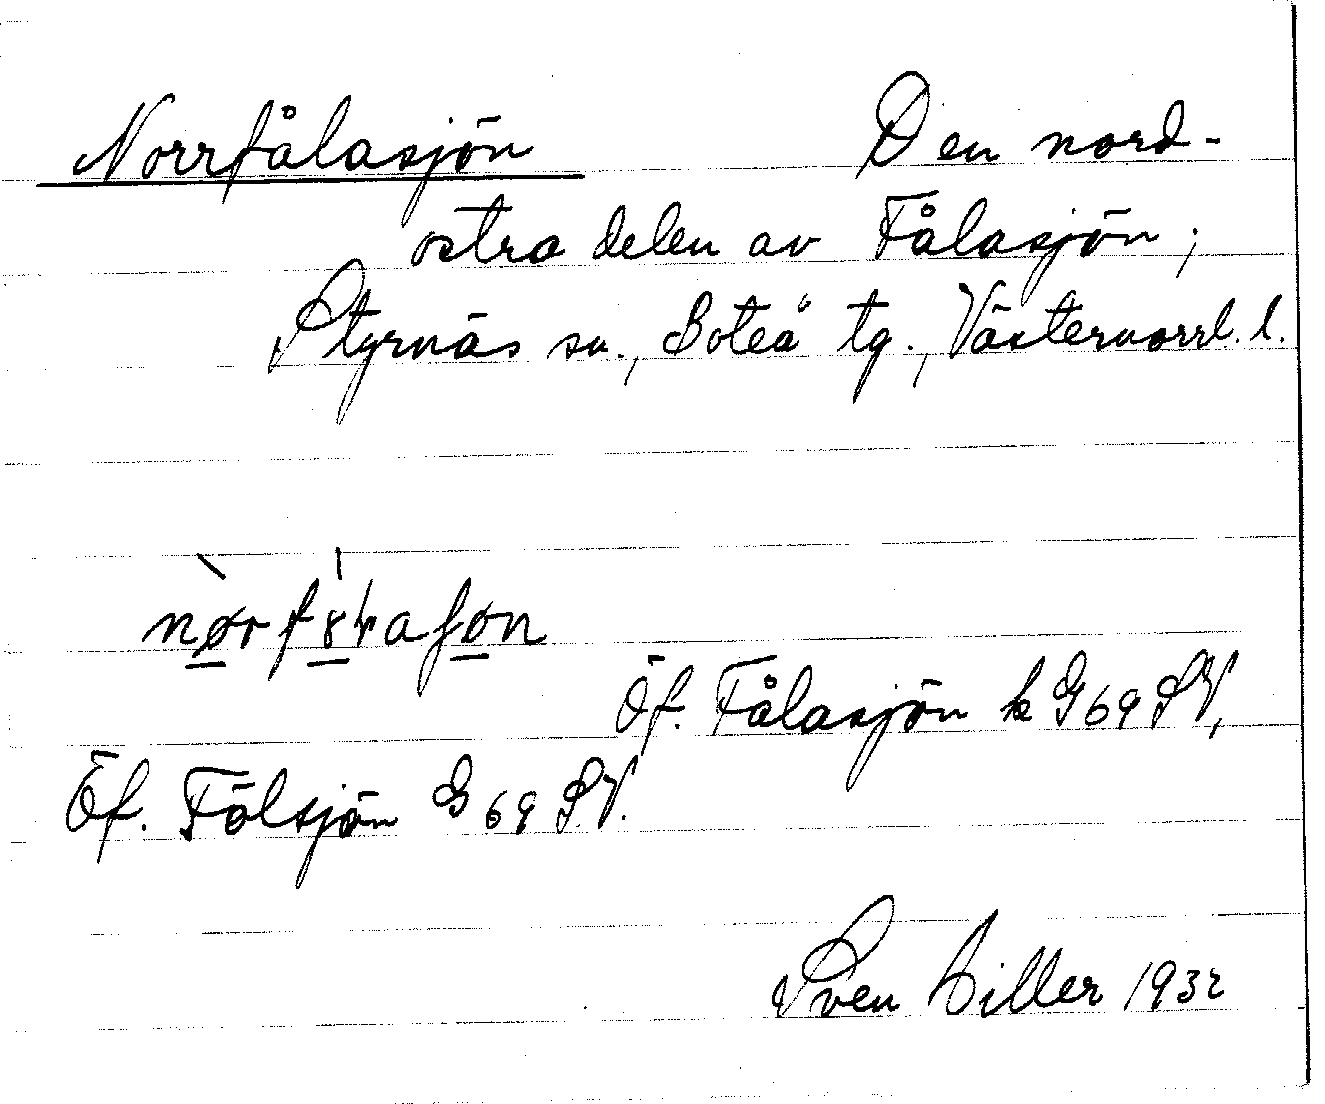 Norrfålasjön Den nord-
östra delen av Fålasjön;
Styrnäs sn., Boteå tg., Västernorrl. l.
Öf. Fålasjön k G 69 SV,
Öf. Fölsjön G 69 SV.
Sven Hiller 1932